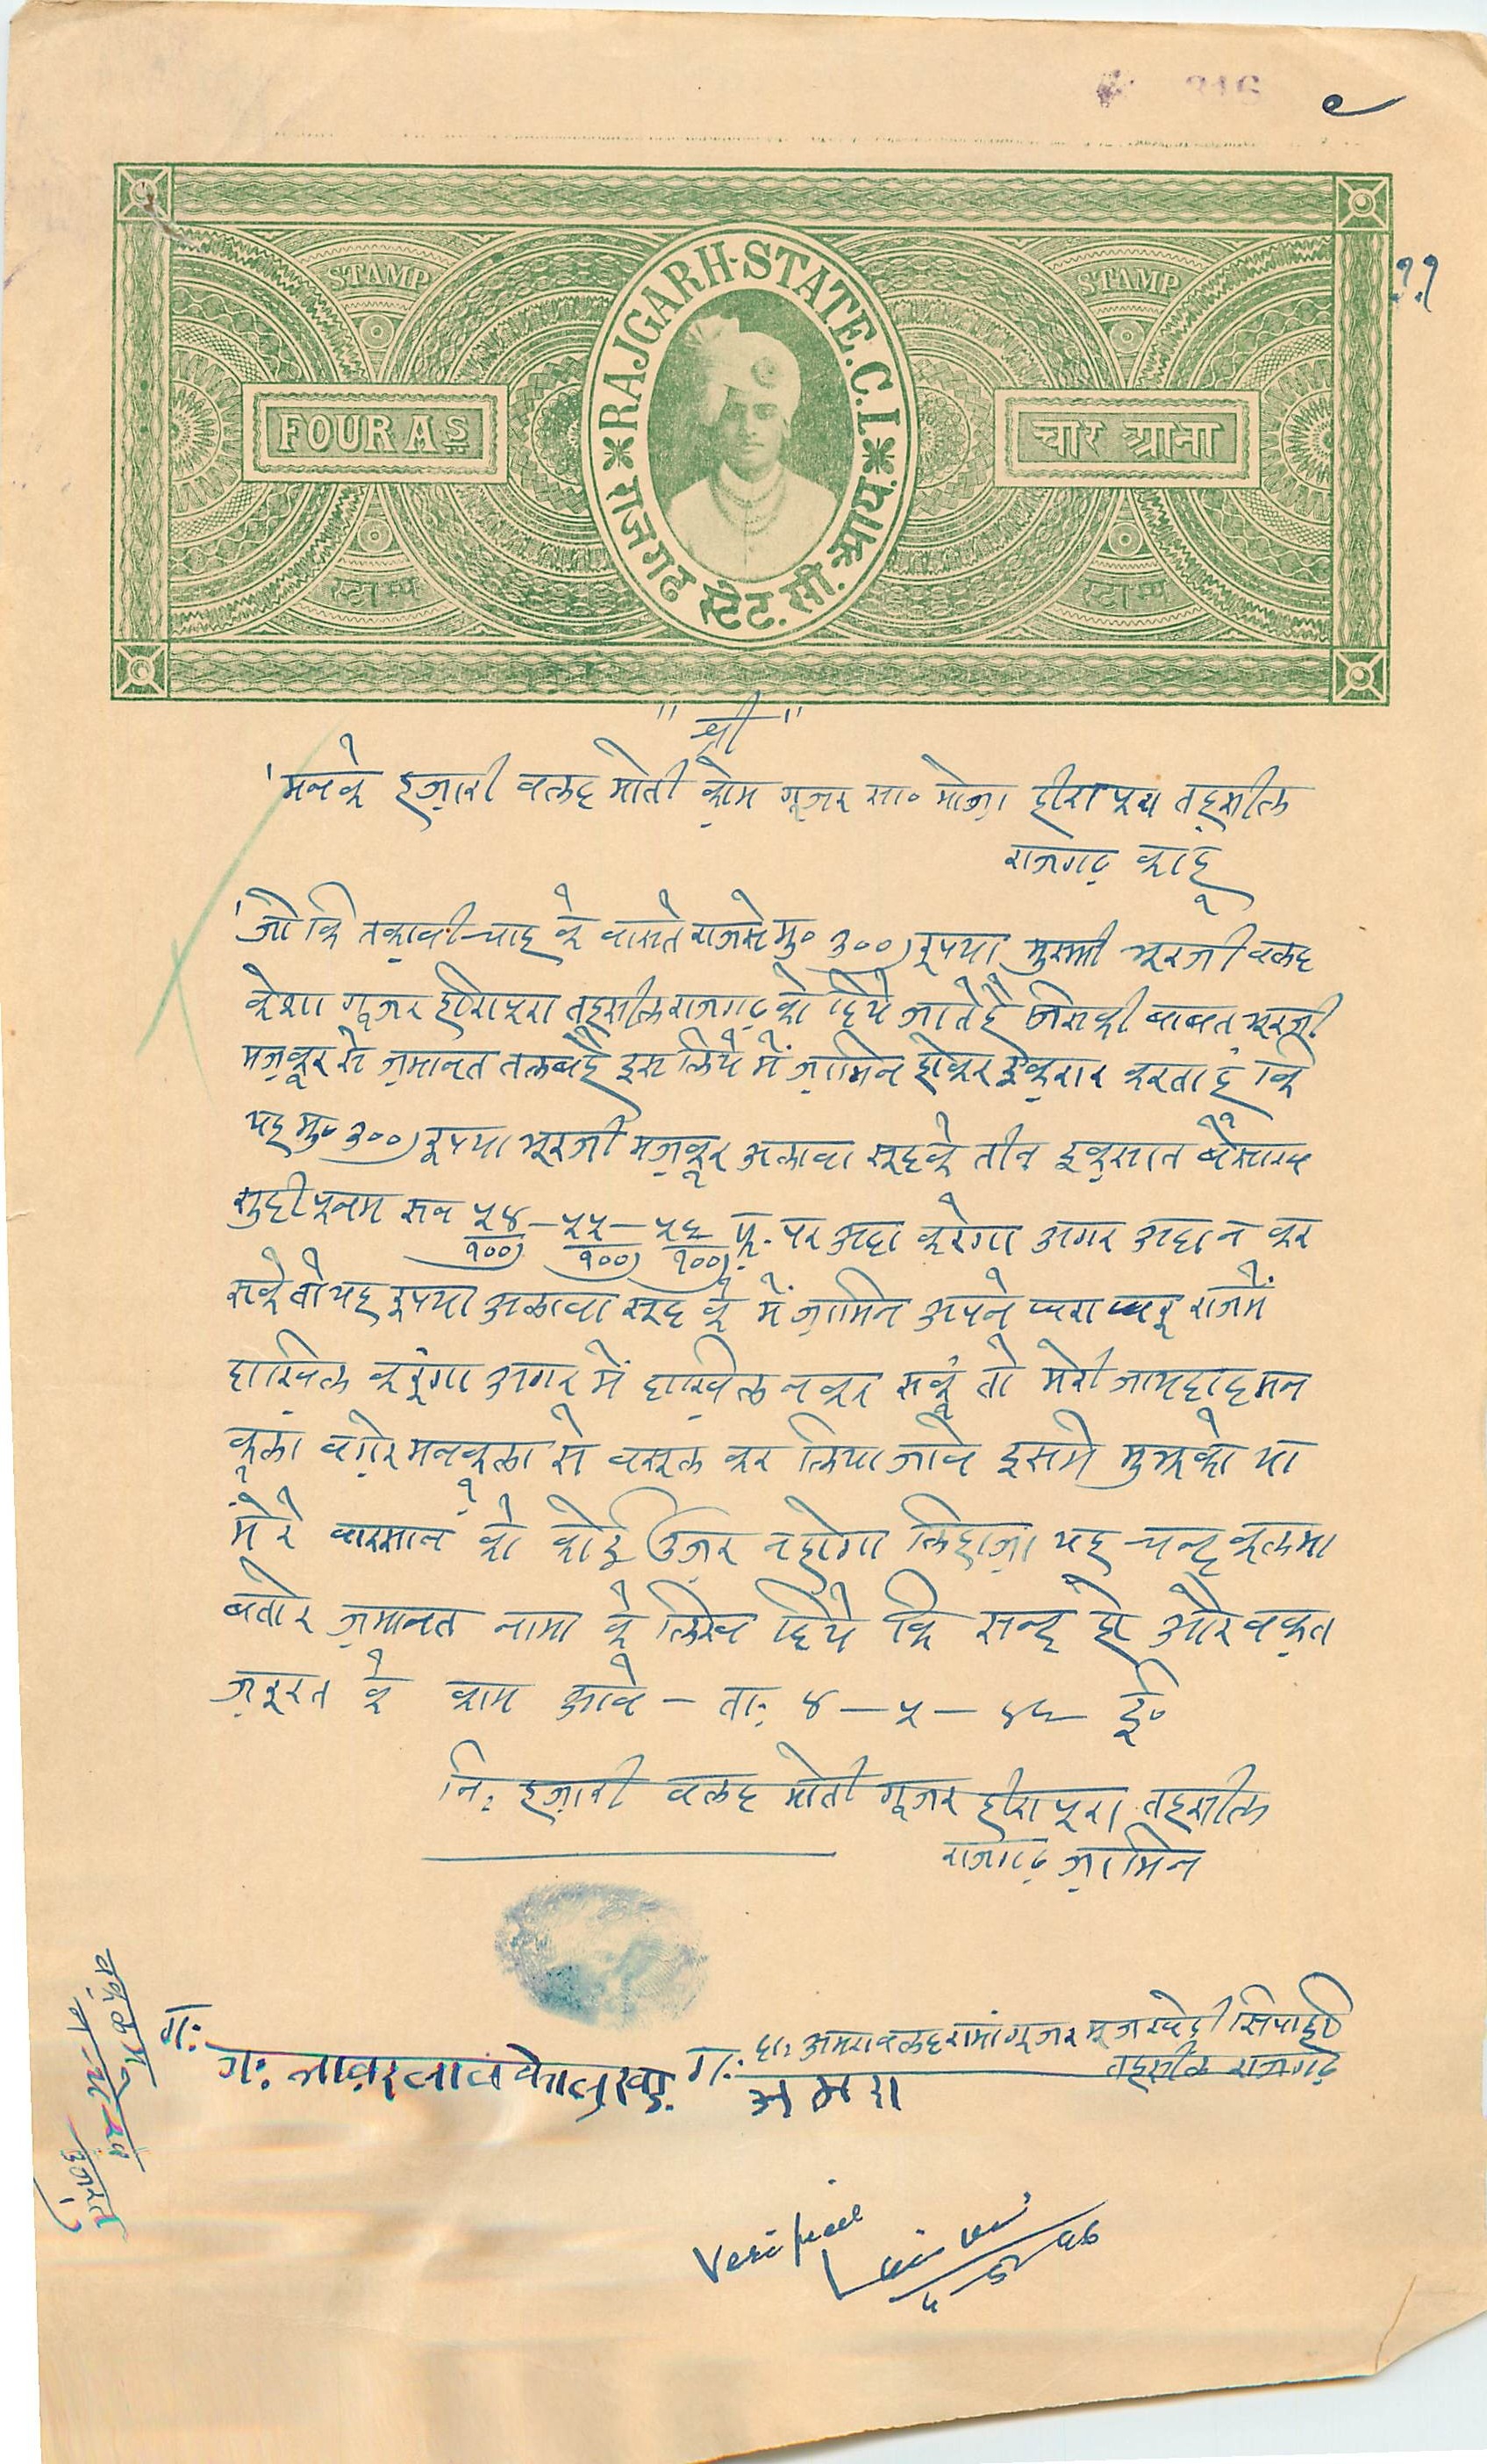 316
STAMP STAMP
RAJGARH-STATE.C.I
FOUR AS
चार आना
राजगढ स्टेट. सी. आय.
स्टाम्प स्टाम्प
११
"श्री"
मनके हज़ारी वलद मोती क़ोम गूजर सा० मोजा हीरापुरा तहसील
राजगढ़ का हूं
जो कि तक़ावी चाह के वास्ते राजसे मु० ३००) रूपया मुसम्मी भूरजी वलद
केशा गूजर हीरापूरा तहसील राजगढ़ को दिये जाते है जिसकी बाबत भूरजी
मज़कूर से ज़मानत तलब है इस लिये में ज़ामिन होकर इक़रार करता हूं कि
यह मु० ३००) रूपया भूरजी मज़कूर अलावा सूद के तीन इक़सात बैसाख
सुदी पूनम सन ५४ — ५५ — ५६ फ़. पर अदा करेगा अगर अदा न कर
१००) १००) १००)
सके तो यह रूपया अलावा सूद के में ज़ामिन अपने घरा घरू राजमें
दाख़िल करूंगा अगर में दाख़िल न कर सकूं तो मेरी जायदाद मन
क़ूला वग़ेर मनक़ूला से वसूल कर लिया जावे इसमे मुझको या
मेरे वारसान को कोई उज़र न होगा लिहाज़ा यह चन्द क़लमा
बतोर ज़मानत नामा के लिख दिये कि सन्द हो और वक़्त
ज़रूरत के काम आवे — ता: ४ — ५ — ४६ ई०
नि: हज़ारी वलद मोती गूजर हीरापूरा तहसील
राजगढ़ ज़ामिन
ग:
ग: ग: दा: अमरा वलद रामा गूजर सिपाही
तहसील राजगढ़
अमरा
Verified
4/5/46